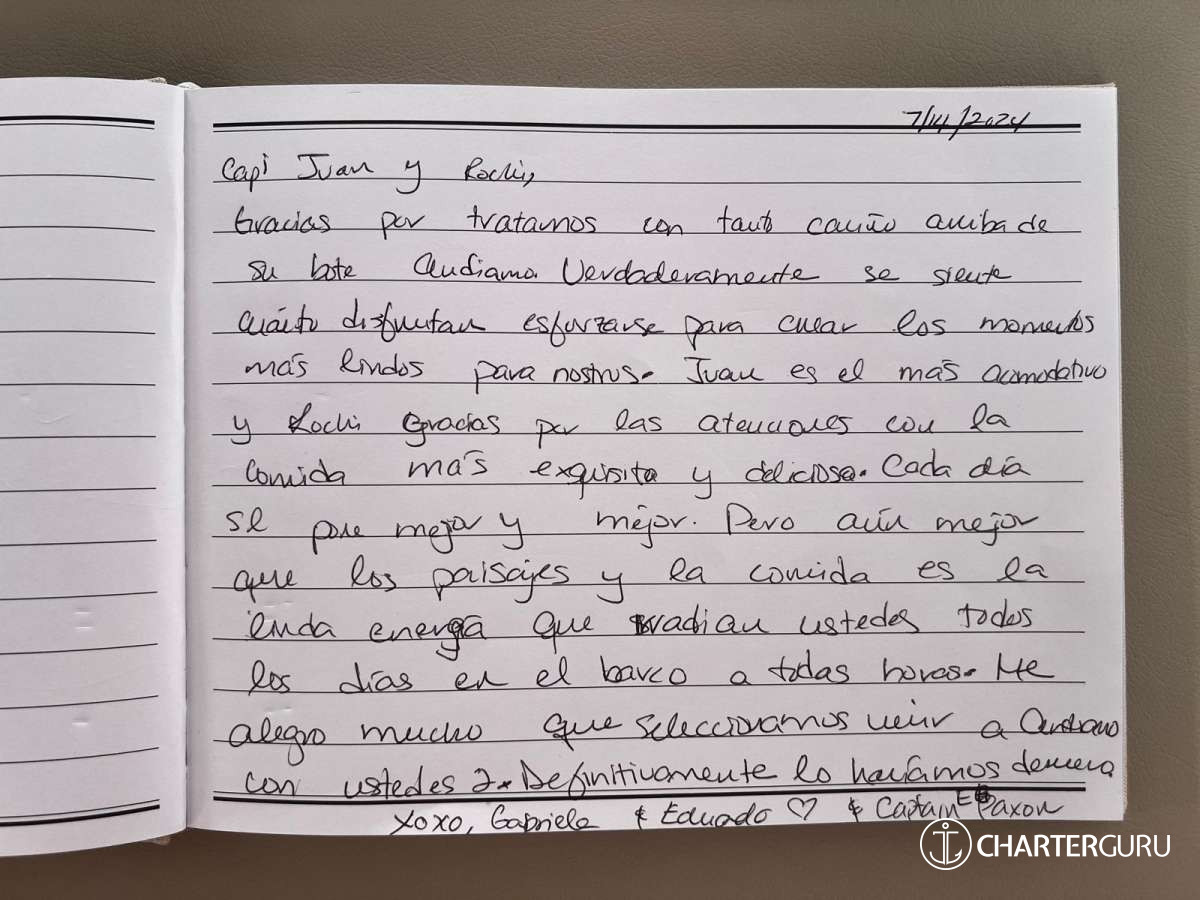 7/14/2024
Capi Juan y Rochi,
Gracias por tratarnos con tanto cariño arriba de
su bote Andiamo. Verdaderamente se siente
cuánto disfrutan esforzarse para crear los momentos
más lindos para nostrus. Juan es el más acomodativo
y Rochi Gracias por las atenciones con la
comida más exquisita y deliciosa. Cada día
se pone mejor y mejor. Pero aún mejor
que los paisajes y la comida es la
linda energía que radian ustedes todos
los días en el barco a todas horas. Me
alegro mucho que seleccionamos venir a Andiamo
con ustedes 2. Definitivamente lo haríamos de nuevo
xoxo, Gabriela & Eduardo ♡ & Captain E Paxon
CHARTERGURU